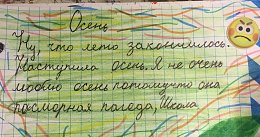 Осень
Ну, что лето закончилось.
Наступила осень. Я не очень
люблю осень потомучто она
пасмурная погода, Школа